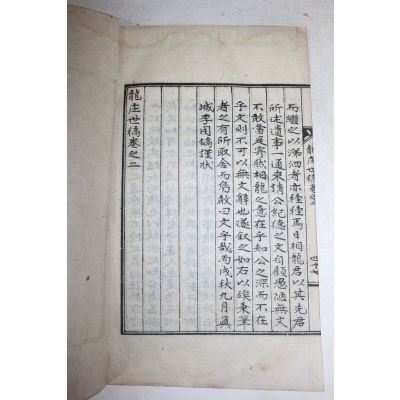 而繼之以涕泗者亦種種焉日相龍君以其先君
所述遺事一通來請公紀德之文自顧愚陋無文
不敢當是寄狀相龍之意在乎知公之深而不在
乎文則不可以無文辭也遂叙之如右以竢秉筆
者之有所取舍而焉敢曰文乎哉丙戌秋九月眞
城李用鎬謹狀
龍庄世稿卷之二
龍庄世稿卷之二
四十七